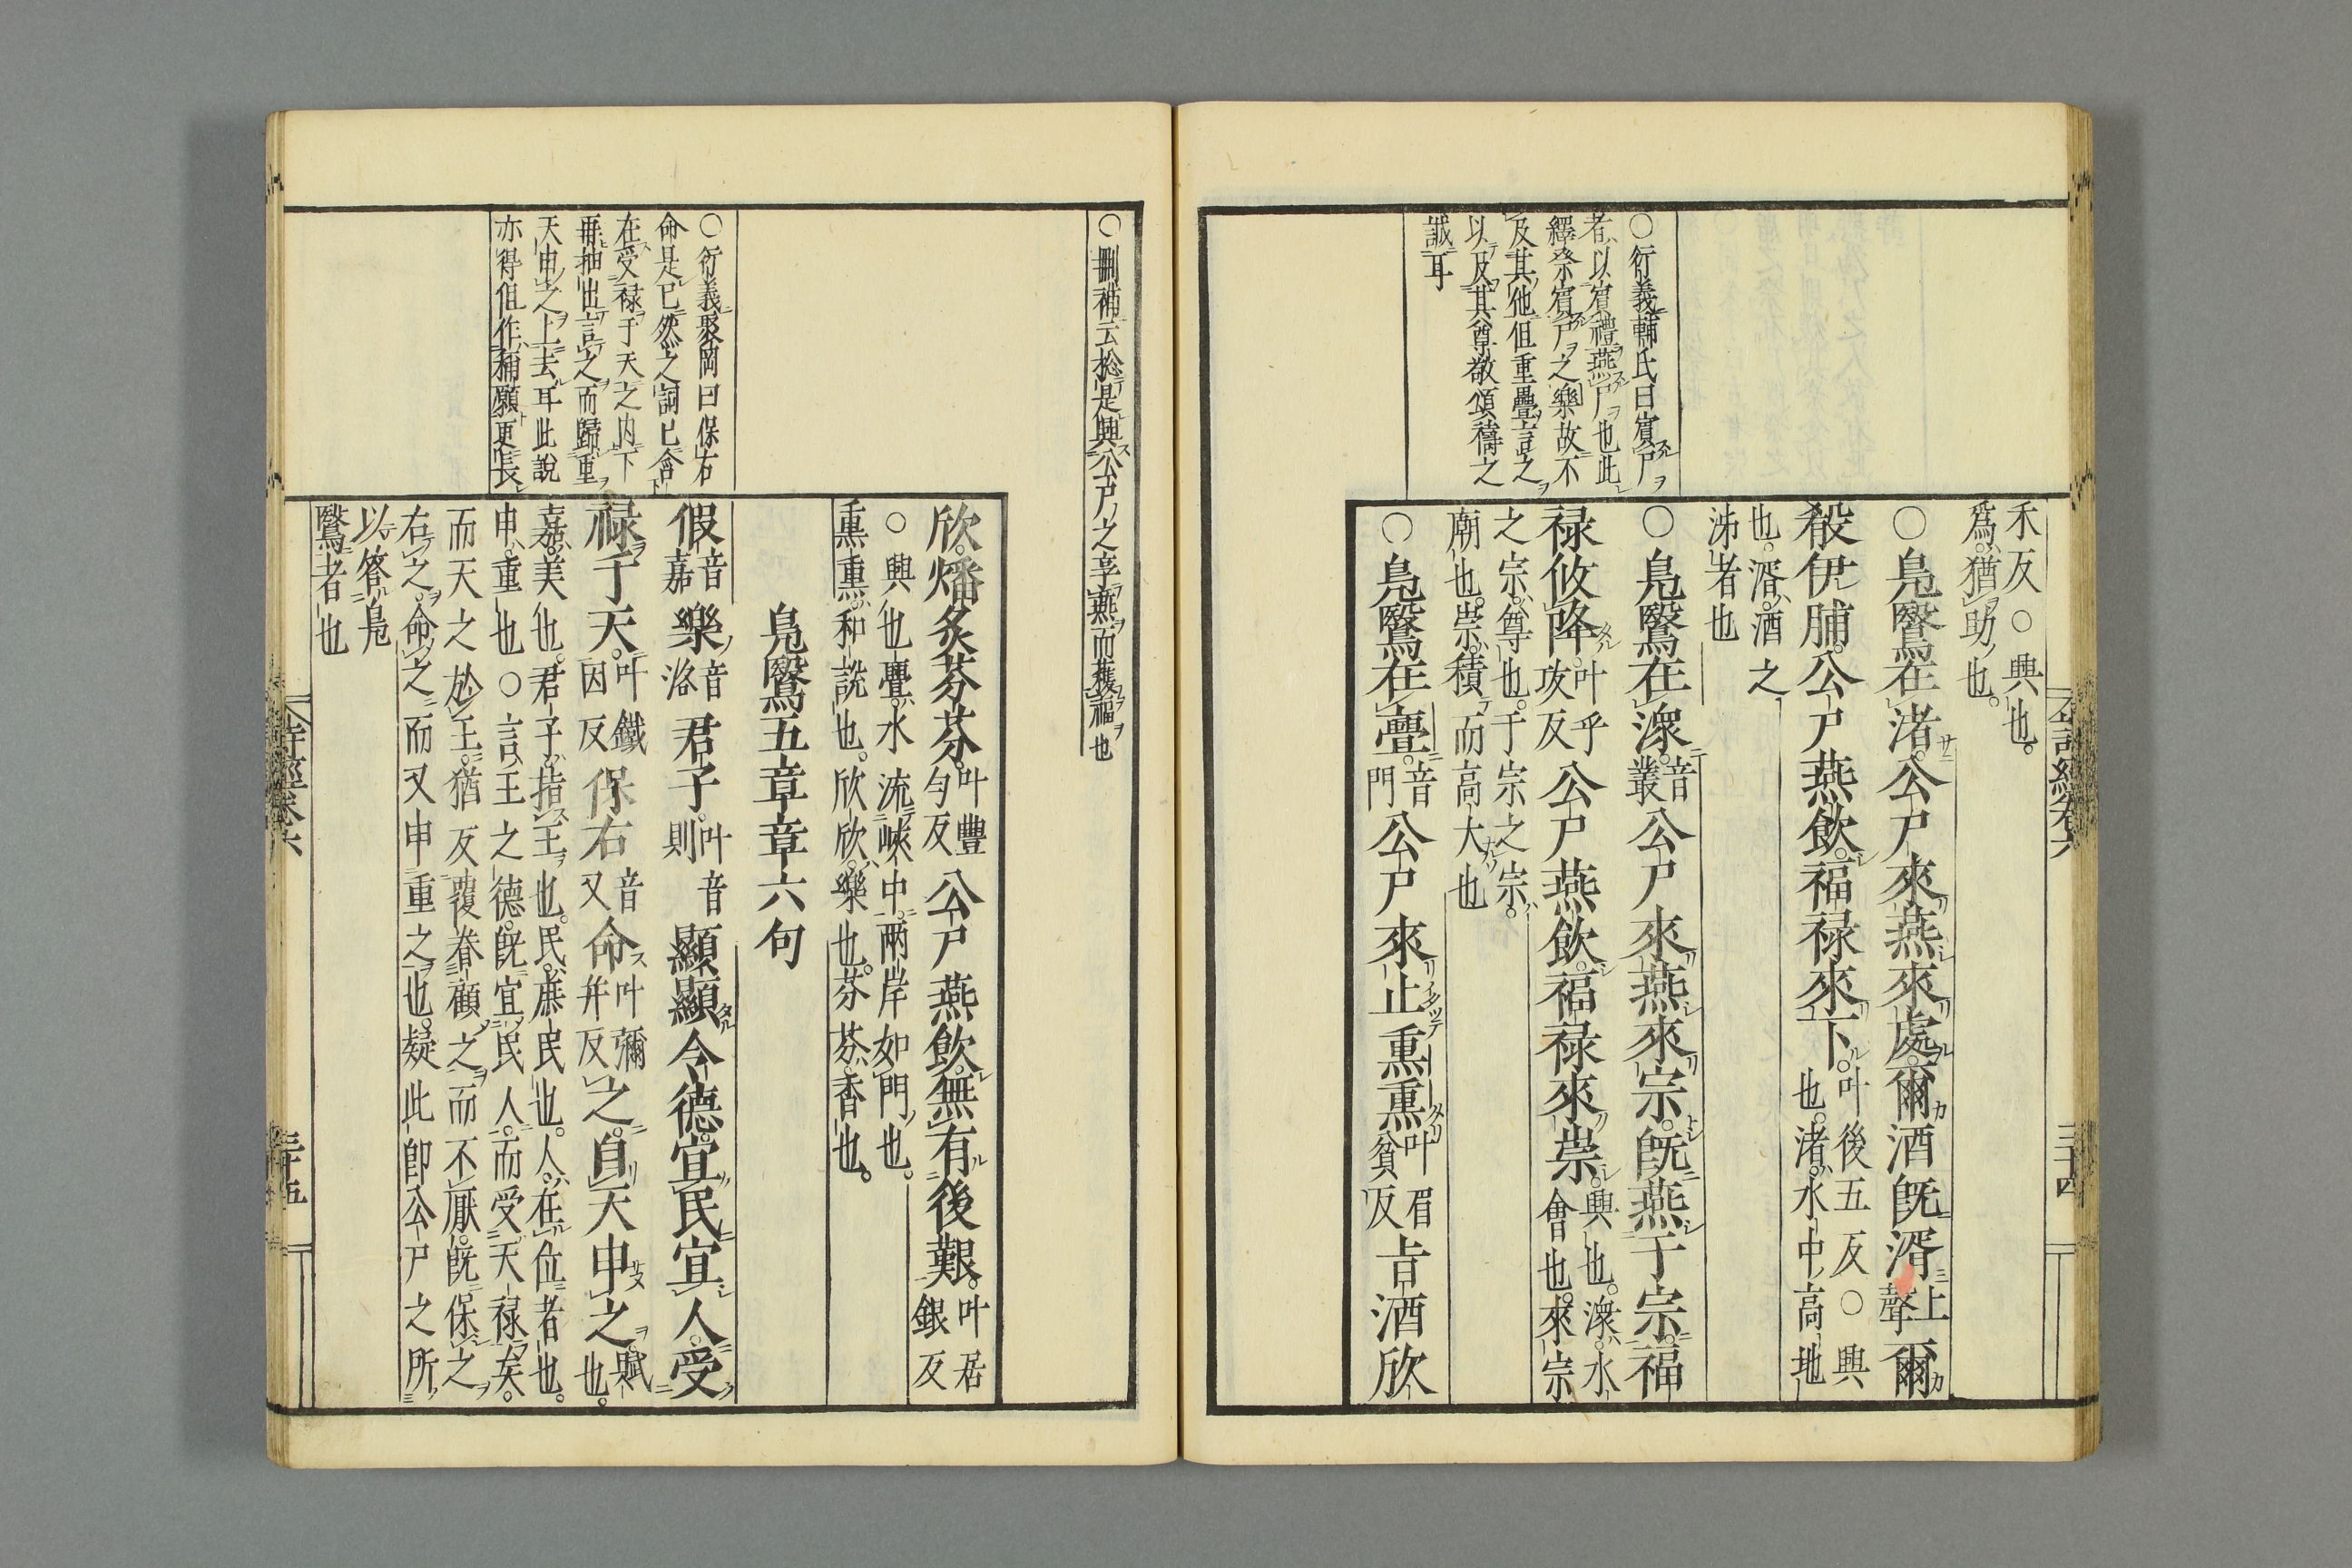 ○衍義輔氏曰賓尸
者以賓禮燕尸也此
繹祭賓尸之樂故不
及其他但重疊言之
以及其尊敬頌禱之
誠耳
禾反○興也
爲猶助也
○鳧鷖在渚公尸來燕來處爾酒旣湑上聲爾
殽伊脯公尸燕飲福禄來下叶後五反○興也渚水中高地
也湑酒之泲者也
○鳧鷖在潀音叢公尸來燕來宗旣燕于宗福
禄攸降叶乎攻反公尸燕飲福禄來崇興也潀水會也來宗
之宗尊也于宗之宗
廟也崇積而高大也
○鳧鷖在亹音門公尸來止熏熏叶眉貧反旨酒欣
詩經卷六
三十四
○刪補云總是興公尸之享燕而獲福也
○衍義聚岡曰保右
命是已然之詞已含
在受禄于天之内下
再抽出言之而歸重
天申之上去耳此說
亦得但作稱願更長
欣燔炙芬芬叶豐勻反公尸燕飲無有後艱叶居銀反
○興也亹水流峽中兩岸如門也
熏熏和說也欣欣樂也芬芬香也
鳧鷖五章章六句
假音嘉樂音洛君子叶音則顯顯令德宜民宜人受
禄于天叶鐵因反保右音又命叶彌并反之自天申之賦也
嘉美也君子指王也民庶民也人在位者也
申重也○言王之德旣宜民人而受天禄矣
而天之於王猶反覆眷顧之而不厭旣保之
右之命之而又申重之也疑此卽公尸之所
以答鳧
鷖者也
詩經卷六
三十五